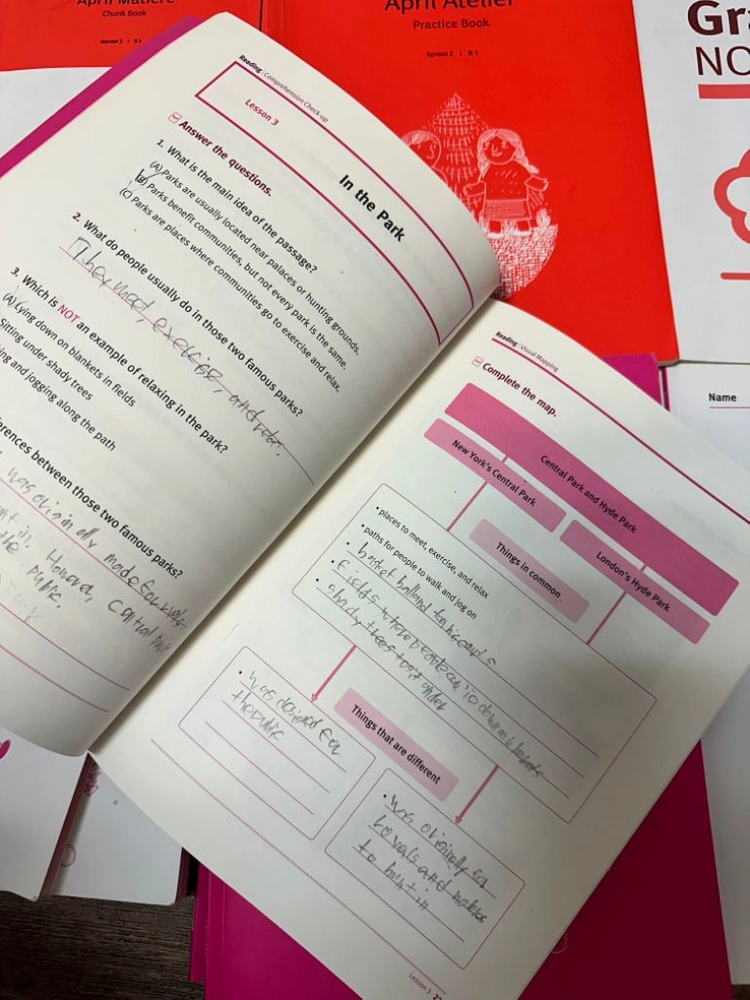 April Matière
Chunk Book
Sprout 2 | B1
April Atelier
Practice Book
Sprout 2 | B1
Gra
NO
Name
Reading : Comprehension Check-up
Lesson 3
In the Park
Answer the questions.
1. What is the main idea of the passage?
(A) Parks are usually located near palaces or hunting grounds.
(B) Parks benefit communities, but not every park is the same.
(C) Parks are places where communities go to exercise and relax.
2. What do people usually do in those two famous parks?
They meet, exercise, and
3. Which is NOT an example of relaxing in the park?
(A) Lying down on blankets in fields
Sitting under shady trees
ing and jogging along the path
erences between those two famous parks?
was originally made for
in. However, Central
the public.
Reading : Visual Mapping
Complete the map.
Central Park and Hyde Park
New York's Central Park
London's Hyde Park
Things in common
• places to meet, exercise, and relax
• paths for people to walk and jog on
•
• Fields where
• shady trees to sit under
Things that are different
• was designed for
the public
• was originally for
royals and nobles
to hunt in
Lesson 3